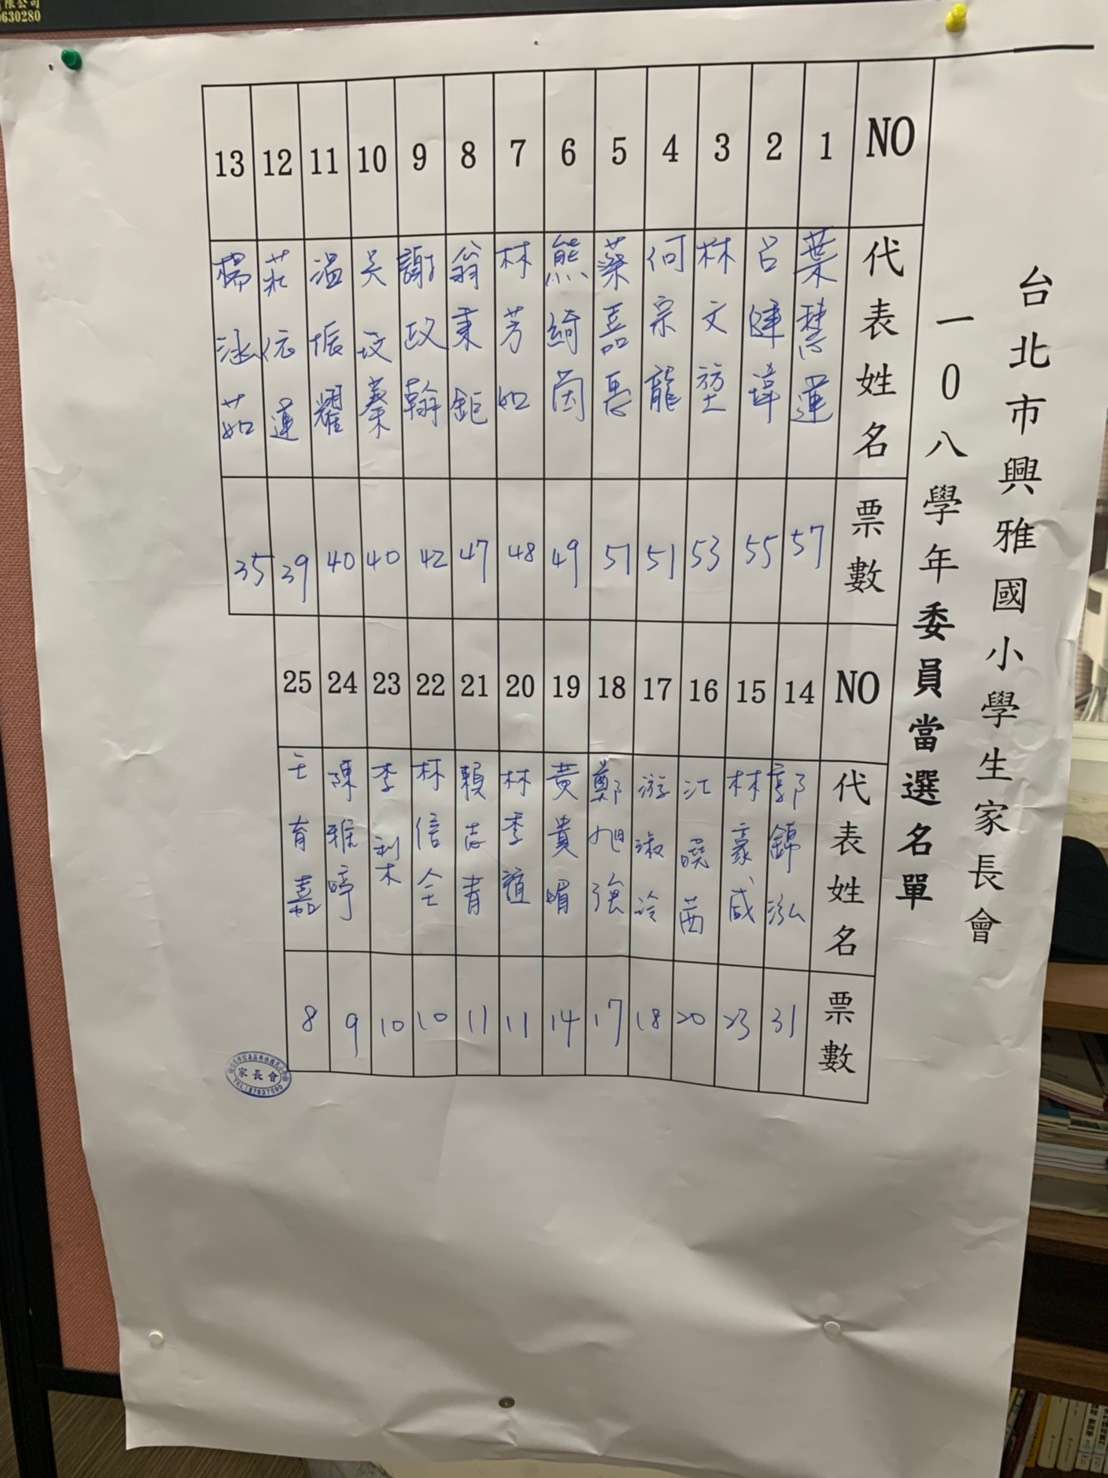 台北市興雅國小學生家長會
一0八學年委員當選名單
NO 代表姓名 票數
1 葉慧蓮 57
2 呂建璋 55
3 林文塑 53
4 何宗龍 51
5 蔡嘉惠 51
6 熊綺茵 49
7 林芳如 48
8 翁秉鉅 47
9 謝政翰 42
10 吳玟蓁 40
11 溫振耀 40
12 莊依蓮 39
13 楊涵茹 35
NO 代表姓名 票數
14 郭錦泓 31
15 林豪威 23
16 江曉茜 20
17 游淑玲 18
18 鄭旭強 17
19 黃貴媚 14
20 林李誼 11
21 賴志青 11
22 林信全 10
23 李利木 10
24 陳雅婷 9
25 王育嘉 8
家長會